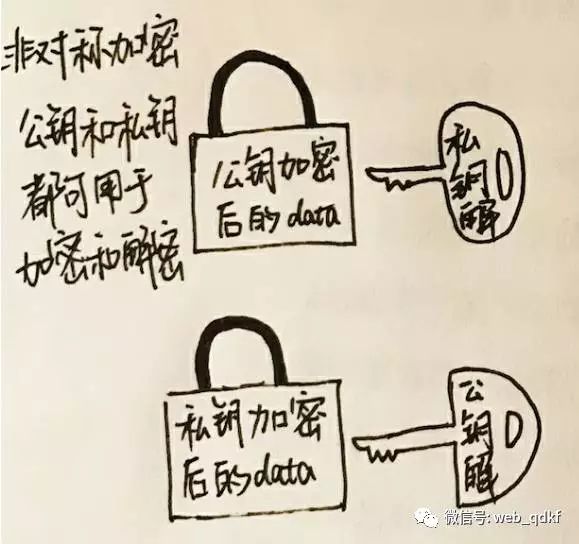 非对称加密
公钥和私钥
都可用于
加密和解密
公钥加密
后的data
私
钥
解
私钥加密
后的data
公
钥
解
微信号: web_qdkf